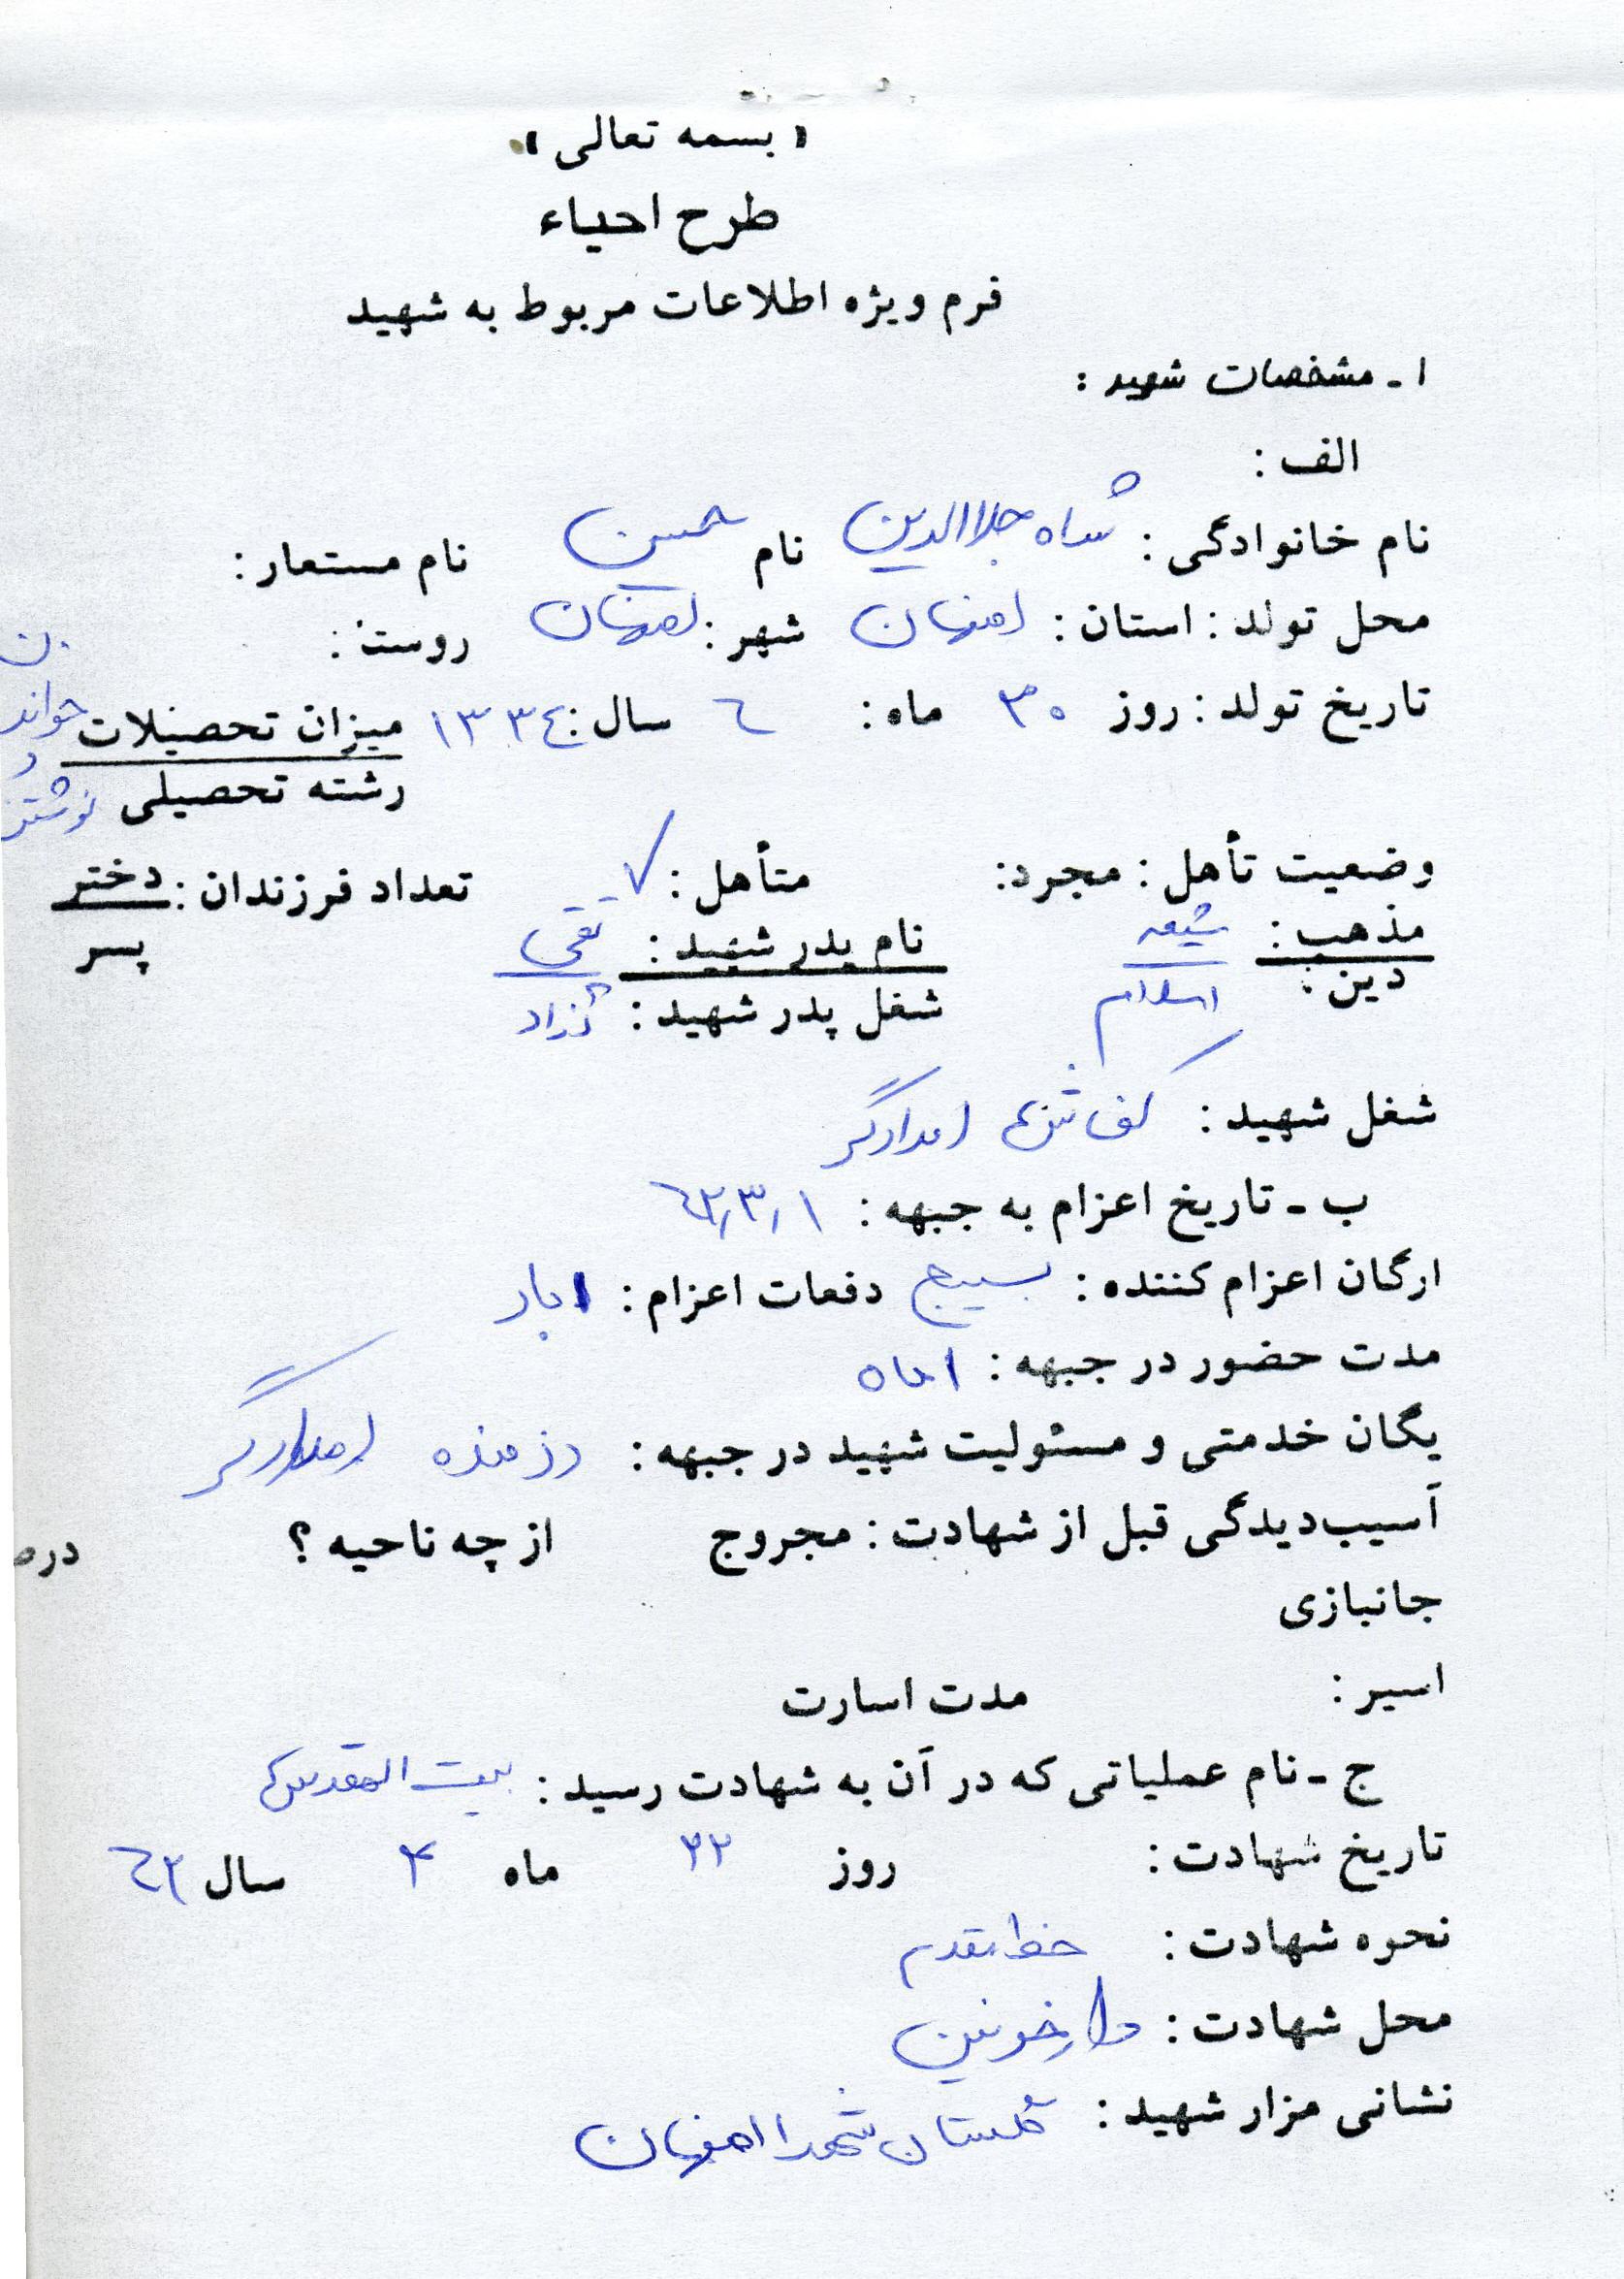 « بسمه تعالی »
طرح احیاء
فرم ویژه اطلاعات مربوط به شهید
۱ ـ مشخصات شهید :
الف :
نام خانوادگی : شاه جلاالدین نام حسین نام مستعار :
محل تولد : استان : اصفهان شهر : اصفهان روستا :
تاریخ تولد : روز ۳۰ ماه : ٦ سال : ۱۳۳٤ میزان تحصیلات خواندن
رشته تحصیلی و نوشتن
وضعیت تأهل : مجرد : متأهل : ✓ تعداد فرزندان : دختر
پسر
مذهب : شیعه نام پدر شهید : تقی
دین : اسلام شغل پدر شهید : آزاد
شغل شهید : کفاش امدادگر
ب ـ تاریخ اعزام به جبهه : ٦۳٫۳٫۱
ارگان اعزام کننده : بسیج دفعات اعزام : ۱ بار
مدت حضور در جبهه : ۱ ماه
یگان خدمتی و مسئولیت شهید در جبهه : رزمنده امدادگر
آسیب‌دیدگی قبل از شهادت : مجروح از چه ناحیه ؟ درص
جانبازی
اسیر : مدت اسارت
ج ـ نام عملیاتی که در آن به شهادت رسید : بیت المقدس
تاریخ شهادت : روز ۲۲ ماه ۴ سال ٦۳
نحوه شهادت : خط مقدم
محل شهادت : دارخوئین
نشانی مزار شهید : گلستان شهدا اصفهان